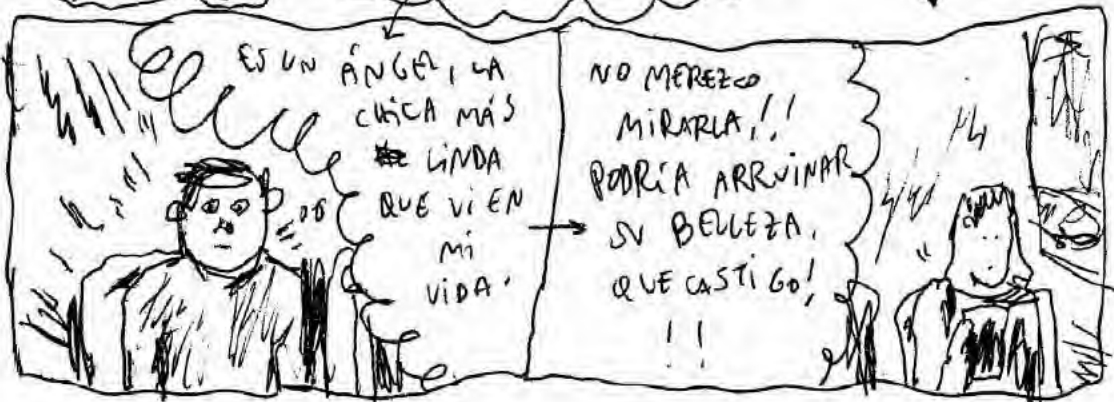 ES UN ÁNGEL, LA
CHICA MÁS
LINDA
QUE VI EN
MI
VIDA.
NO MEREZCO
MIRARLA!!
PODRÍA ARRUINAR
SU BELLEZA.
QUE CASTIGO!
!!